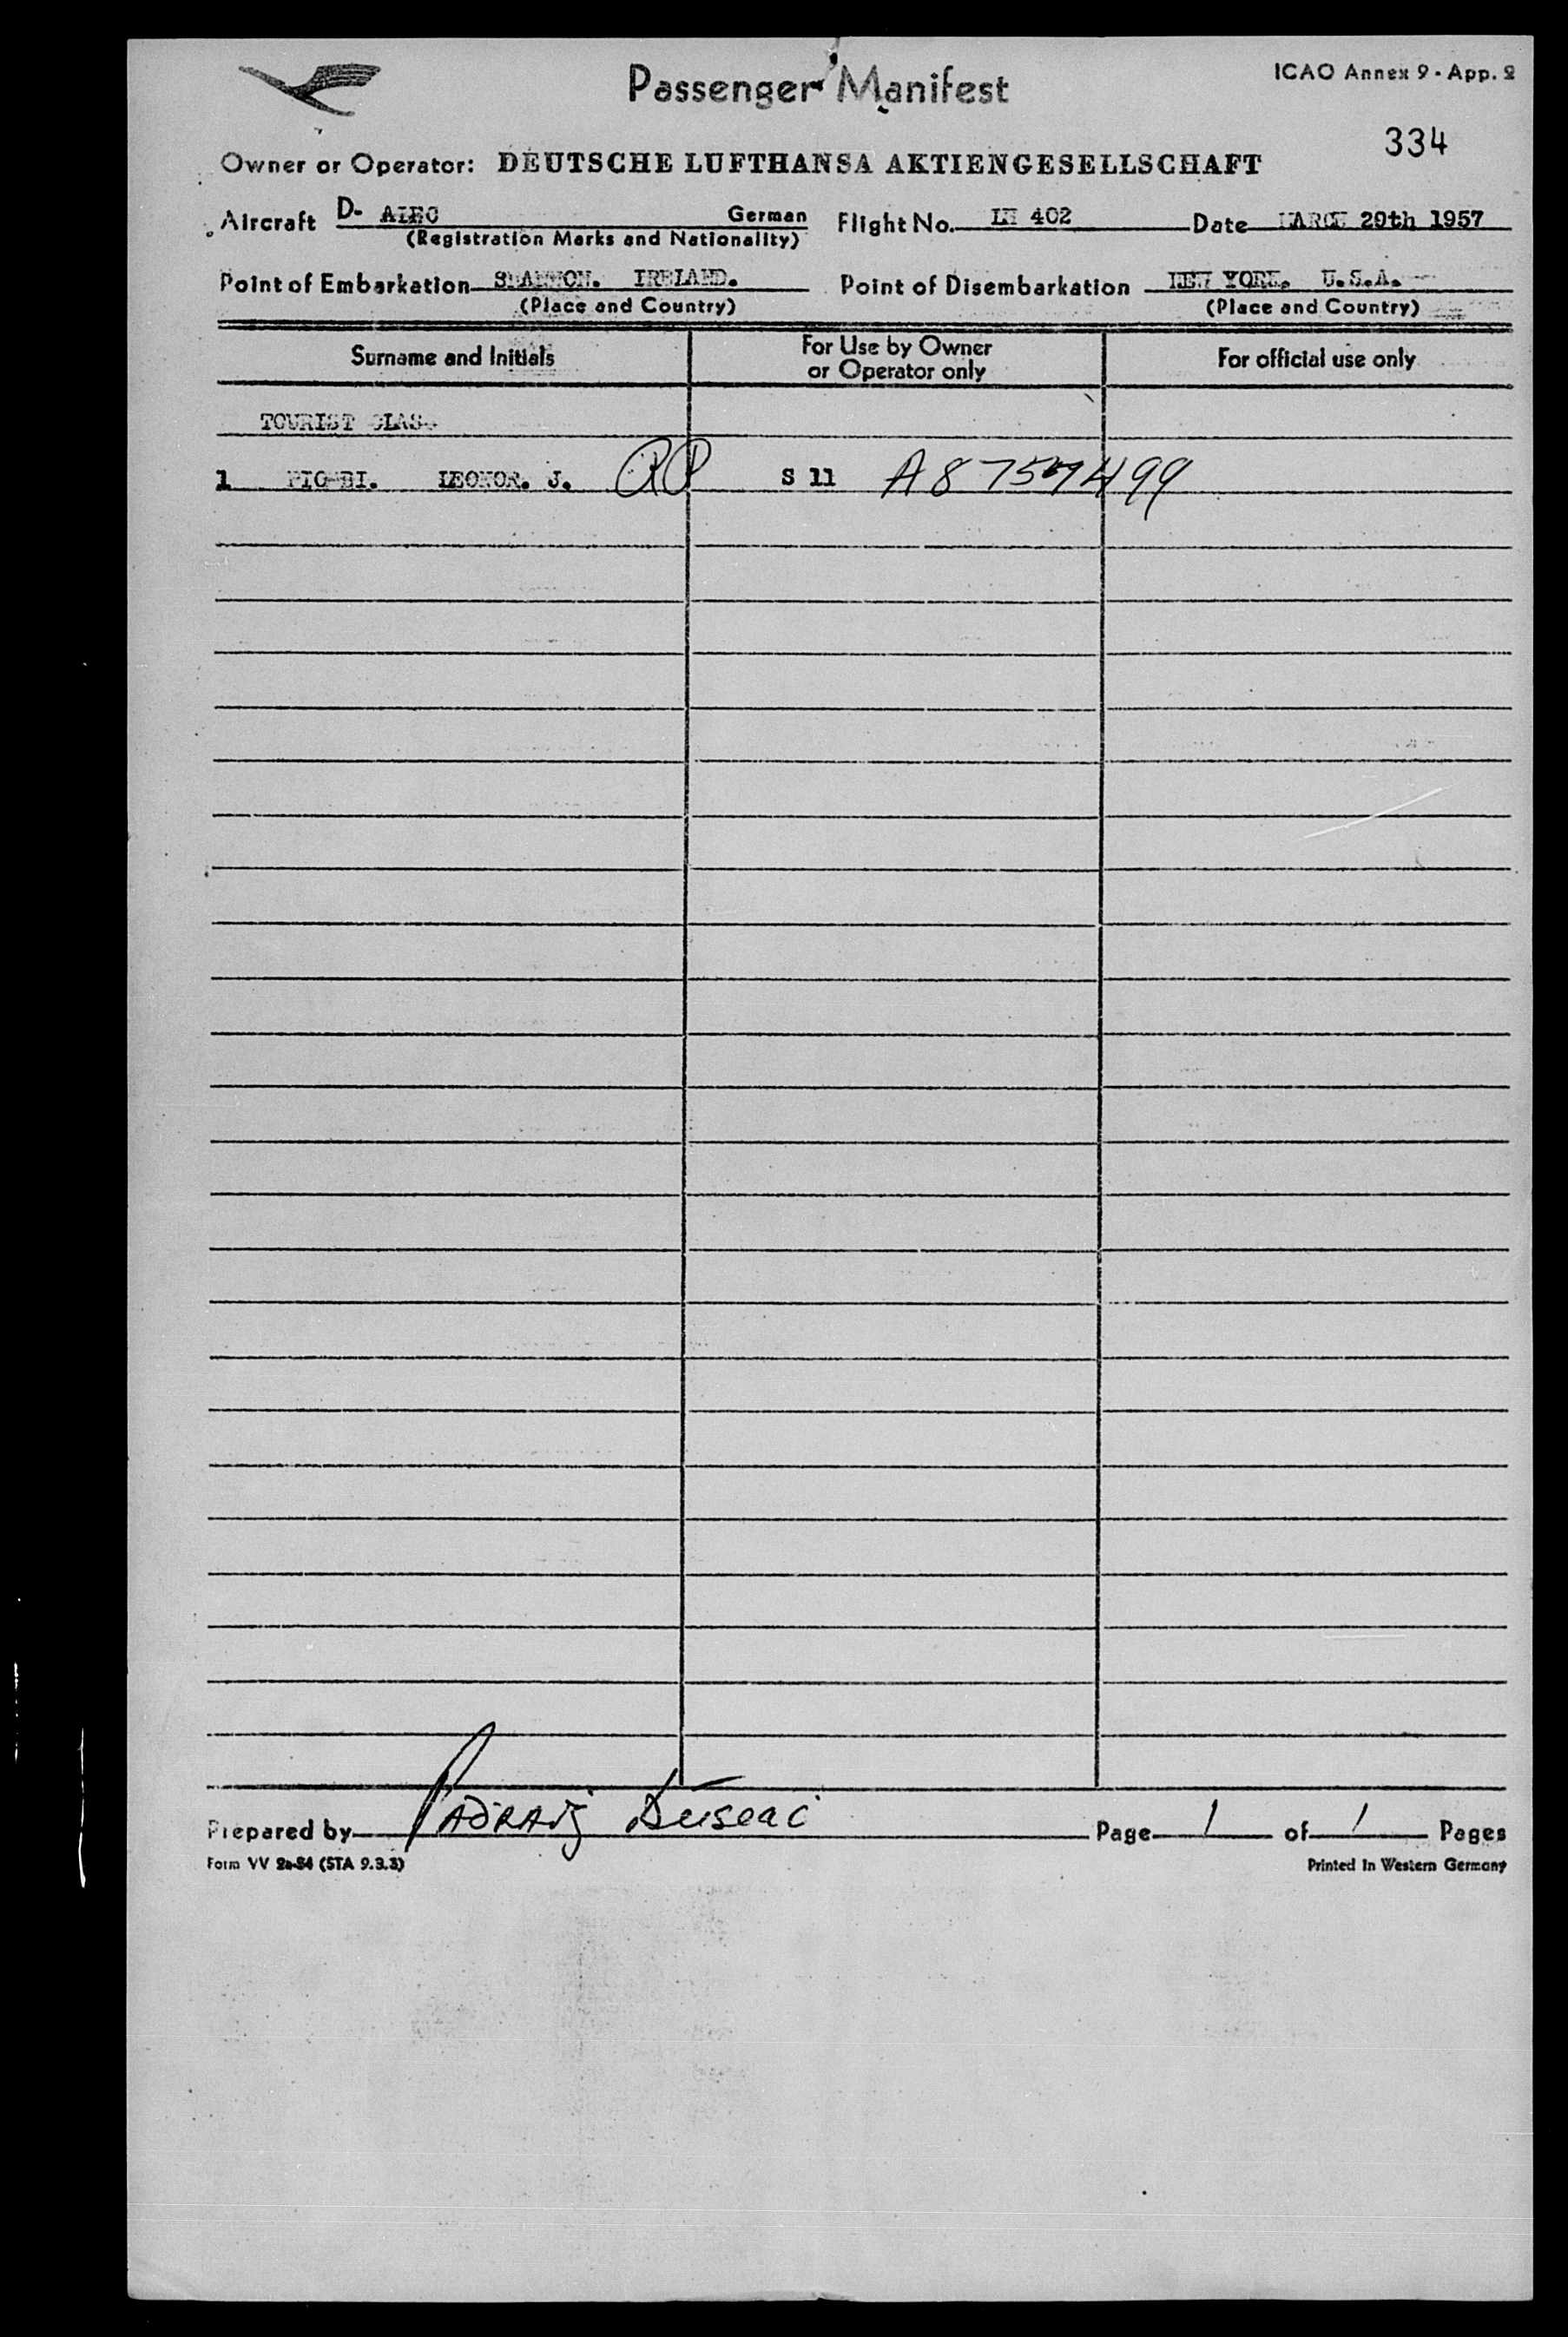 Passenger Manifest
ICAO Annex 9 - App. 2
334
Owner or Operator: DEUTSCHE LUFTHANSA AKTIENGESELLSCHAFT
Aircraft D- German Flight No. LH 402 Date MARCH 20th 1957
(Registration Marks and Nationality)
Point of Embarkation SHANNON. IRELAND. Point of Disembarkation NEW YORK. U.S.A.
(Place and Country) (Place and Country)
Surname and Initials For Use by Owner or Operator only For official use only
TOURIST CLASS
1 LEONOR. J. S 11
Prepared by Page 1 of 1 Pages
Form VV 2a-54 (STA 9.3.3) Printed in Western Germany